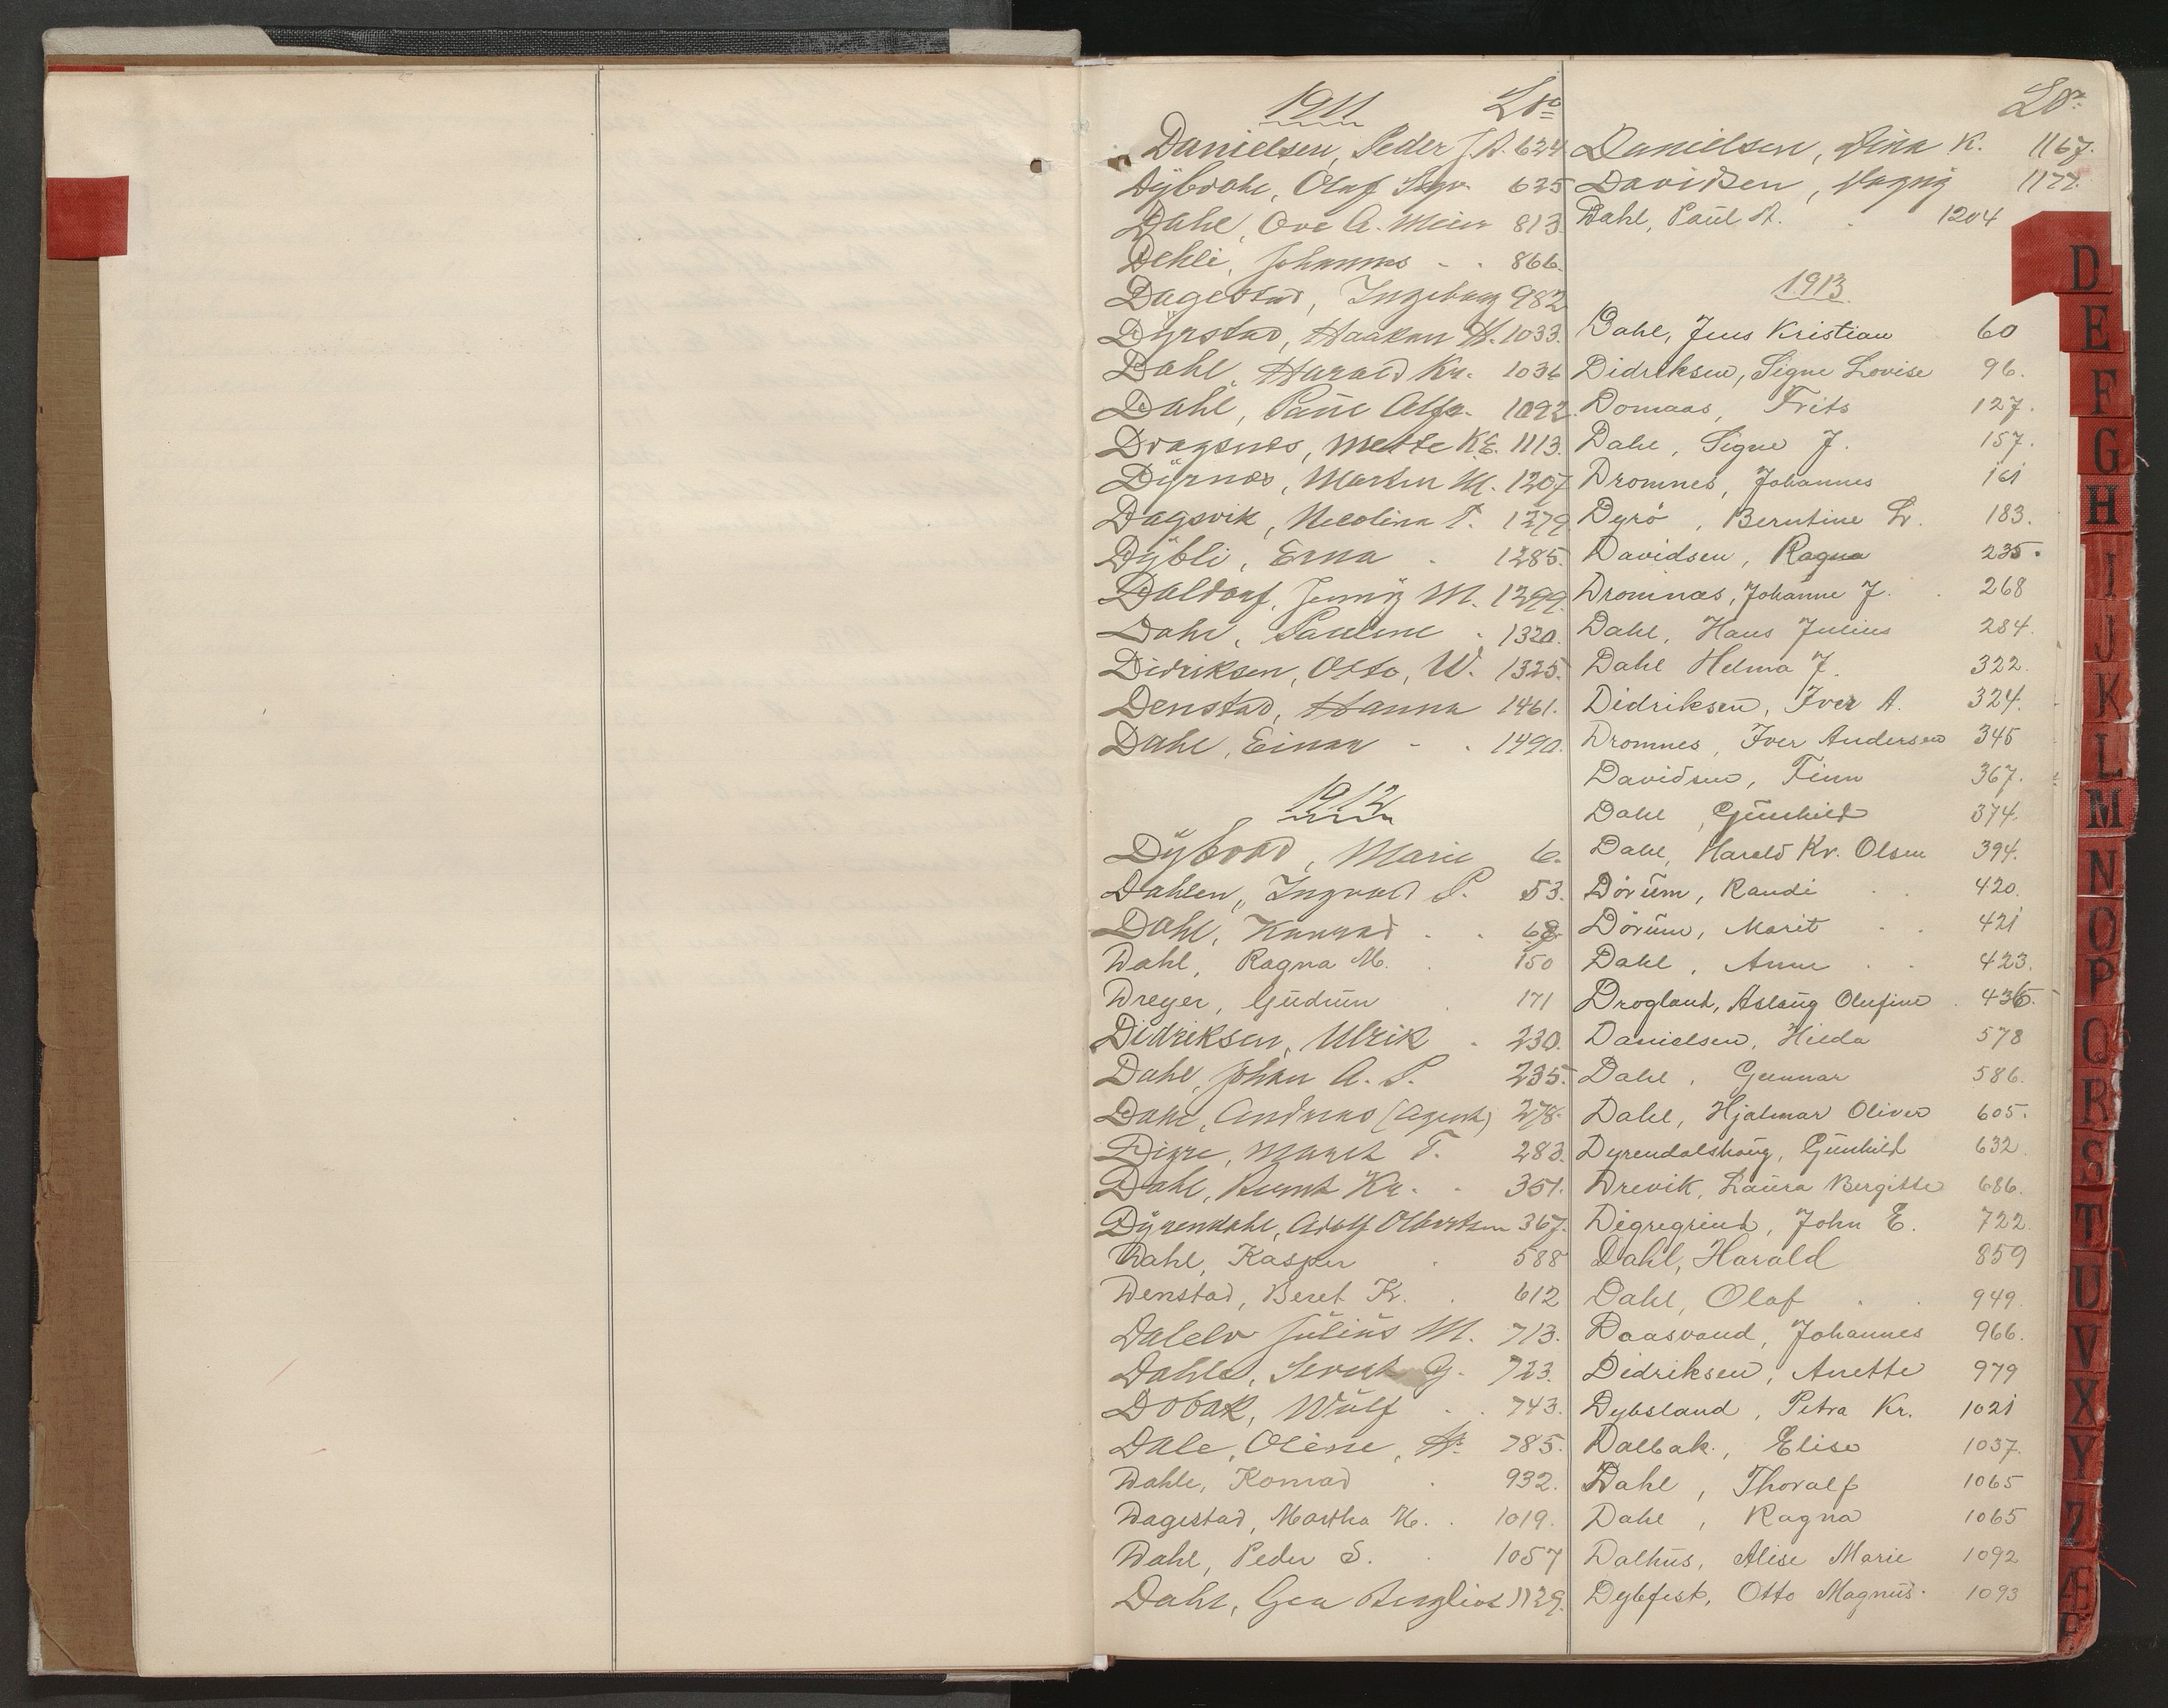 1911 Lo
Danielsen, Peder J.A. 624
Dÿbdahl, Olaf 625
Dahl, Ove A. Meier 813.
Dehli, Johannes - . 866.
Dagestad, Ingeborg 982
Dÿrstad, Haakon H. 1033.
Dahl, Harald Kr. 1036
Dahl, Paul Alfr. 1092.
Dragsnes, Mette K.E. 1113.
Dÿrnæs, Morten M. 1207
Dagsvik, Nicolina P. 1279
Dÿbli, Erna . 1285.
Daldorf, Jennÿ M. 1299.
Dahl, Pauline . 1320.
Didriksen, Otto, W. 1325.
Denstad, Hanna 1461.
Dahl, Einar - . 1490.
1912
Dÿbvad, Marie 6.
Dahlen, Ingvald P. 53.
Dahl, Konrad . . 68
Dahl, Ragna M. . 150
Dreyer, Gudrun . 171
Didriksen, Ulrik . 230.
Dahl, Johan A. P. 235.
Dahl, Andreas (Agent) 278.
Digre, Marit T. 283.
Dahl, Bernt Kr. . 351.
Dÿrendahl, Adolf Olbertsen 367.
Dahl, Kasper . 588
Denstad, Beret Kr. . 612
Dalelv Julius M. 713.
Dahle, Sevrik G. 723.
Dobak, Wulf . . 743.
Dale, Oline, H. 785.
Dahle, Konrad . 932.
Dagestad, Martha H. . 1019.
Dahl, Peder S. . 1057
Dahl, Gea Bergliot 1129.
Lo
Danielsen, Dina K. 1167.
Davidsen, Dagnÿ 1177.
Dahl, Paul A. . 1204
1913.
Dahl, Jens Kristian 60
Didriksen, Signe Lovise 96.
Domaas, Frits 127.
Dahl, Signe J. 157.
Dromnes, Johannes 161
Dyrö, Berntine L. 183.
Davidsen, Ragna 235.
Dromnæs, Johanne J. . 268
Dahl, Hans Julius 284.
Dahl Helma J. 322.
Didriksen, Iver A. 324.
Dromnes, Iver Andersen 345
Davidsen, Finn 367.
Dahl, Gunhild 374.
Dahl, Harald Kr. Olsen 394.
Dörum, Randi . . 420.
Dörum, Marit . . 421
Dahl, Anne . . 423.
Drogland, Aslaug Olufine . 436.
Danielsen, Hilda 578
Dahl, Gunnar 586.
Dahl, Hjalmar Oliver 605.
Dyrendalshaug, Gunhild 632.
Drevik, Laura Bergitte 686.
Digregrind, John E. 722
Dahl, Harald 859
Dahl, Olaf . . 949.
Daasvand, Johannes 966.
Didriksen, Anette 979
Dybsland, Petra Kr. 1021
Dalbak, Elise 1037.
Dahl, Thoralf 1065
Dahl, Ragna 1065
Dalhus, Alise Marie 1092
Dybfest, Otto Magnus. 1093
D
E
F
G
H
I
J
K
L
M
N
O
P
Q
R
S
T
U
V
X
Y
Z
Æ